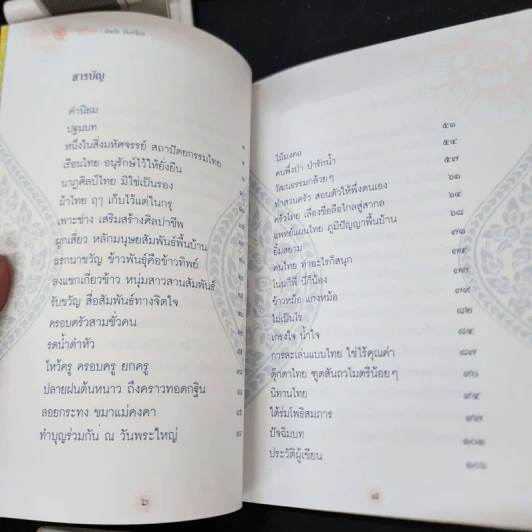 สารบัญ
คำนิยม
ปฐมบท
หนึ่งในสิ่งมหัศจรรย์ สถาปัตยกรรมไทย
เรือนไทย อนุรักษ์ไว้ให้ยั่งยืน
นาฏศิลป์ไทย มิใช่เป็นรอง
ผ้าไทย ฤๅ เก็บไว้แต่ในกรุ
เพาะช่าง เสริมสร้างศิลปาชีพ
ผูกเสี่ยว หลักมนุษยสัมพันธ์พื้นบ้าน
แรกนาขวัญ ข้าวพันธุ์คือข้าวทิพย์
ลงแขกเกี่ยวข้าว หนุ่มสาวสานสัมพันธ์
รับขวัญ สื่อสัมพันธ์ทางจิตใจ
ครอบครัวสามชั่วคน
รดน้ำดำหัว
ไหว้ครู ครอบครู ยกครู
ปลายฝนต้นหนาว ถึงคราวทอดกฐิน
ลอยกระทง ขมาแม่คงคา
ทำบุญร่วมกัน ณ วันพระใหญ่
๖
ไม้มงคล ๕๑
คนพึ่งป่า ป่ารักน้ำ ๕๔
วัฒนธรรมกล้วยๆ ๕๗
ทำสวนครัว สอนตัวให้พึ่งตนเอง ๖๑
ครัวไทย เลื่องชื่อลือไกลสู่สากล ๖๔
แพทย์แผนไทย ภูมิปัญญาพื้นบ้าน ๖๘
ยิ้มสยาม ๗๑
คนไทย ทำอะไรก็สนุก ๗๔
โน่นก็พี่ นี่ก็น้อง ๗๗
ข้าวหม้อ แกงหม้อ ๗๙
ไม่เป็นไร ๘๒
เกรงใจ น้ำใจ ๘๔
การละเล่นแบบไทย ใช่ไร้คุณค่า ๘๗
ตุ๊กตาไทย ทูตสันถวไมตรีน้อยๆ ๙๐
นิทานไทย ๙๔
ใต้ร่มโพธิสมภาร ๙๗
ปัจฉิมบท ๑๐๑
ประวัติผู้เขียน ๑๐๖
๘